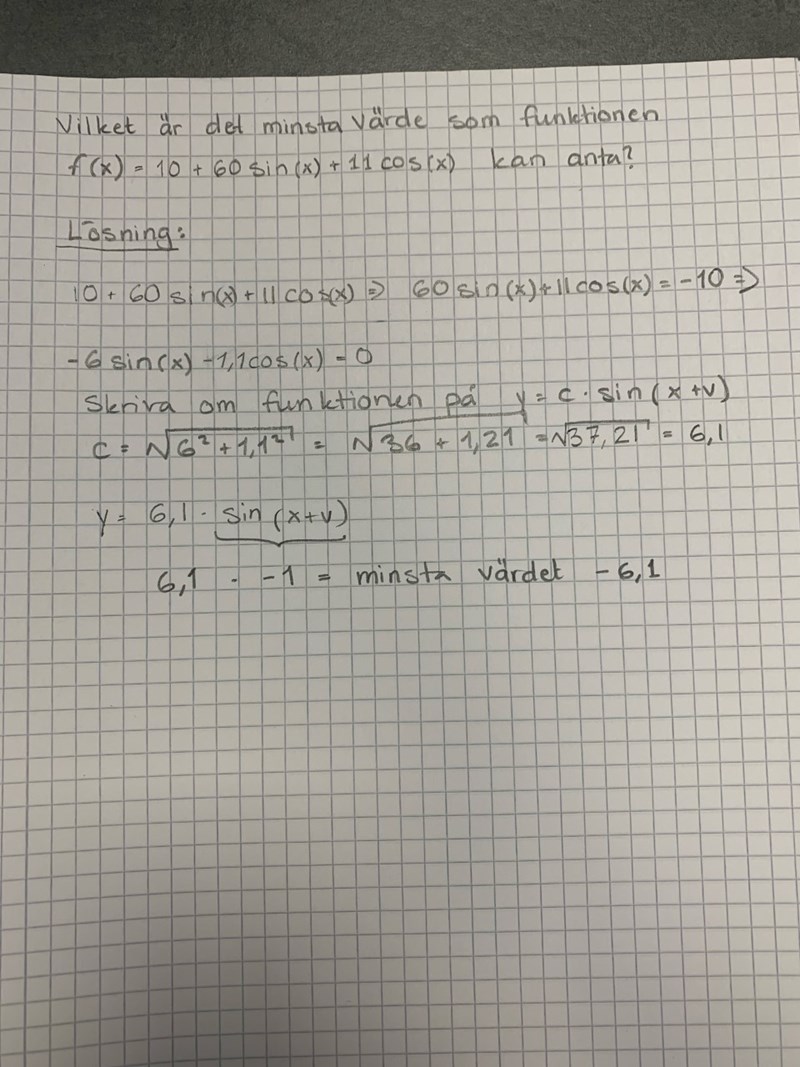 Vilket är det minsta värde som funktionen
f(x) = 10 + 60 sin(x) + 11 cos(x) kan anta?
Lösning:
10 + 60 sin(x) + 11 cos(x) => 60 sin(x) + 11 cos(x) = -10 =>
-6 sin(x) - 1,1 cos(x) = 0
Skriva om funktionen på y = c · sin(x + v)
c = √6² + 1,1² = √36 + 1,21 = √37,21 = 6,1
y = 6,1 · sin(x+v)
6,1 · -1 = minsta värdet -6,1